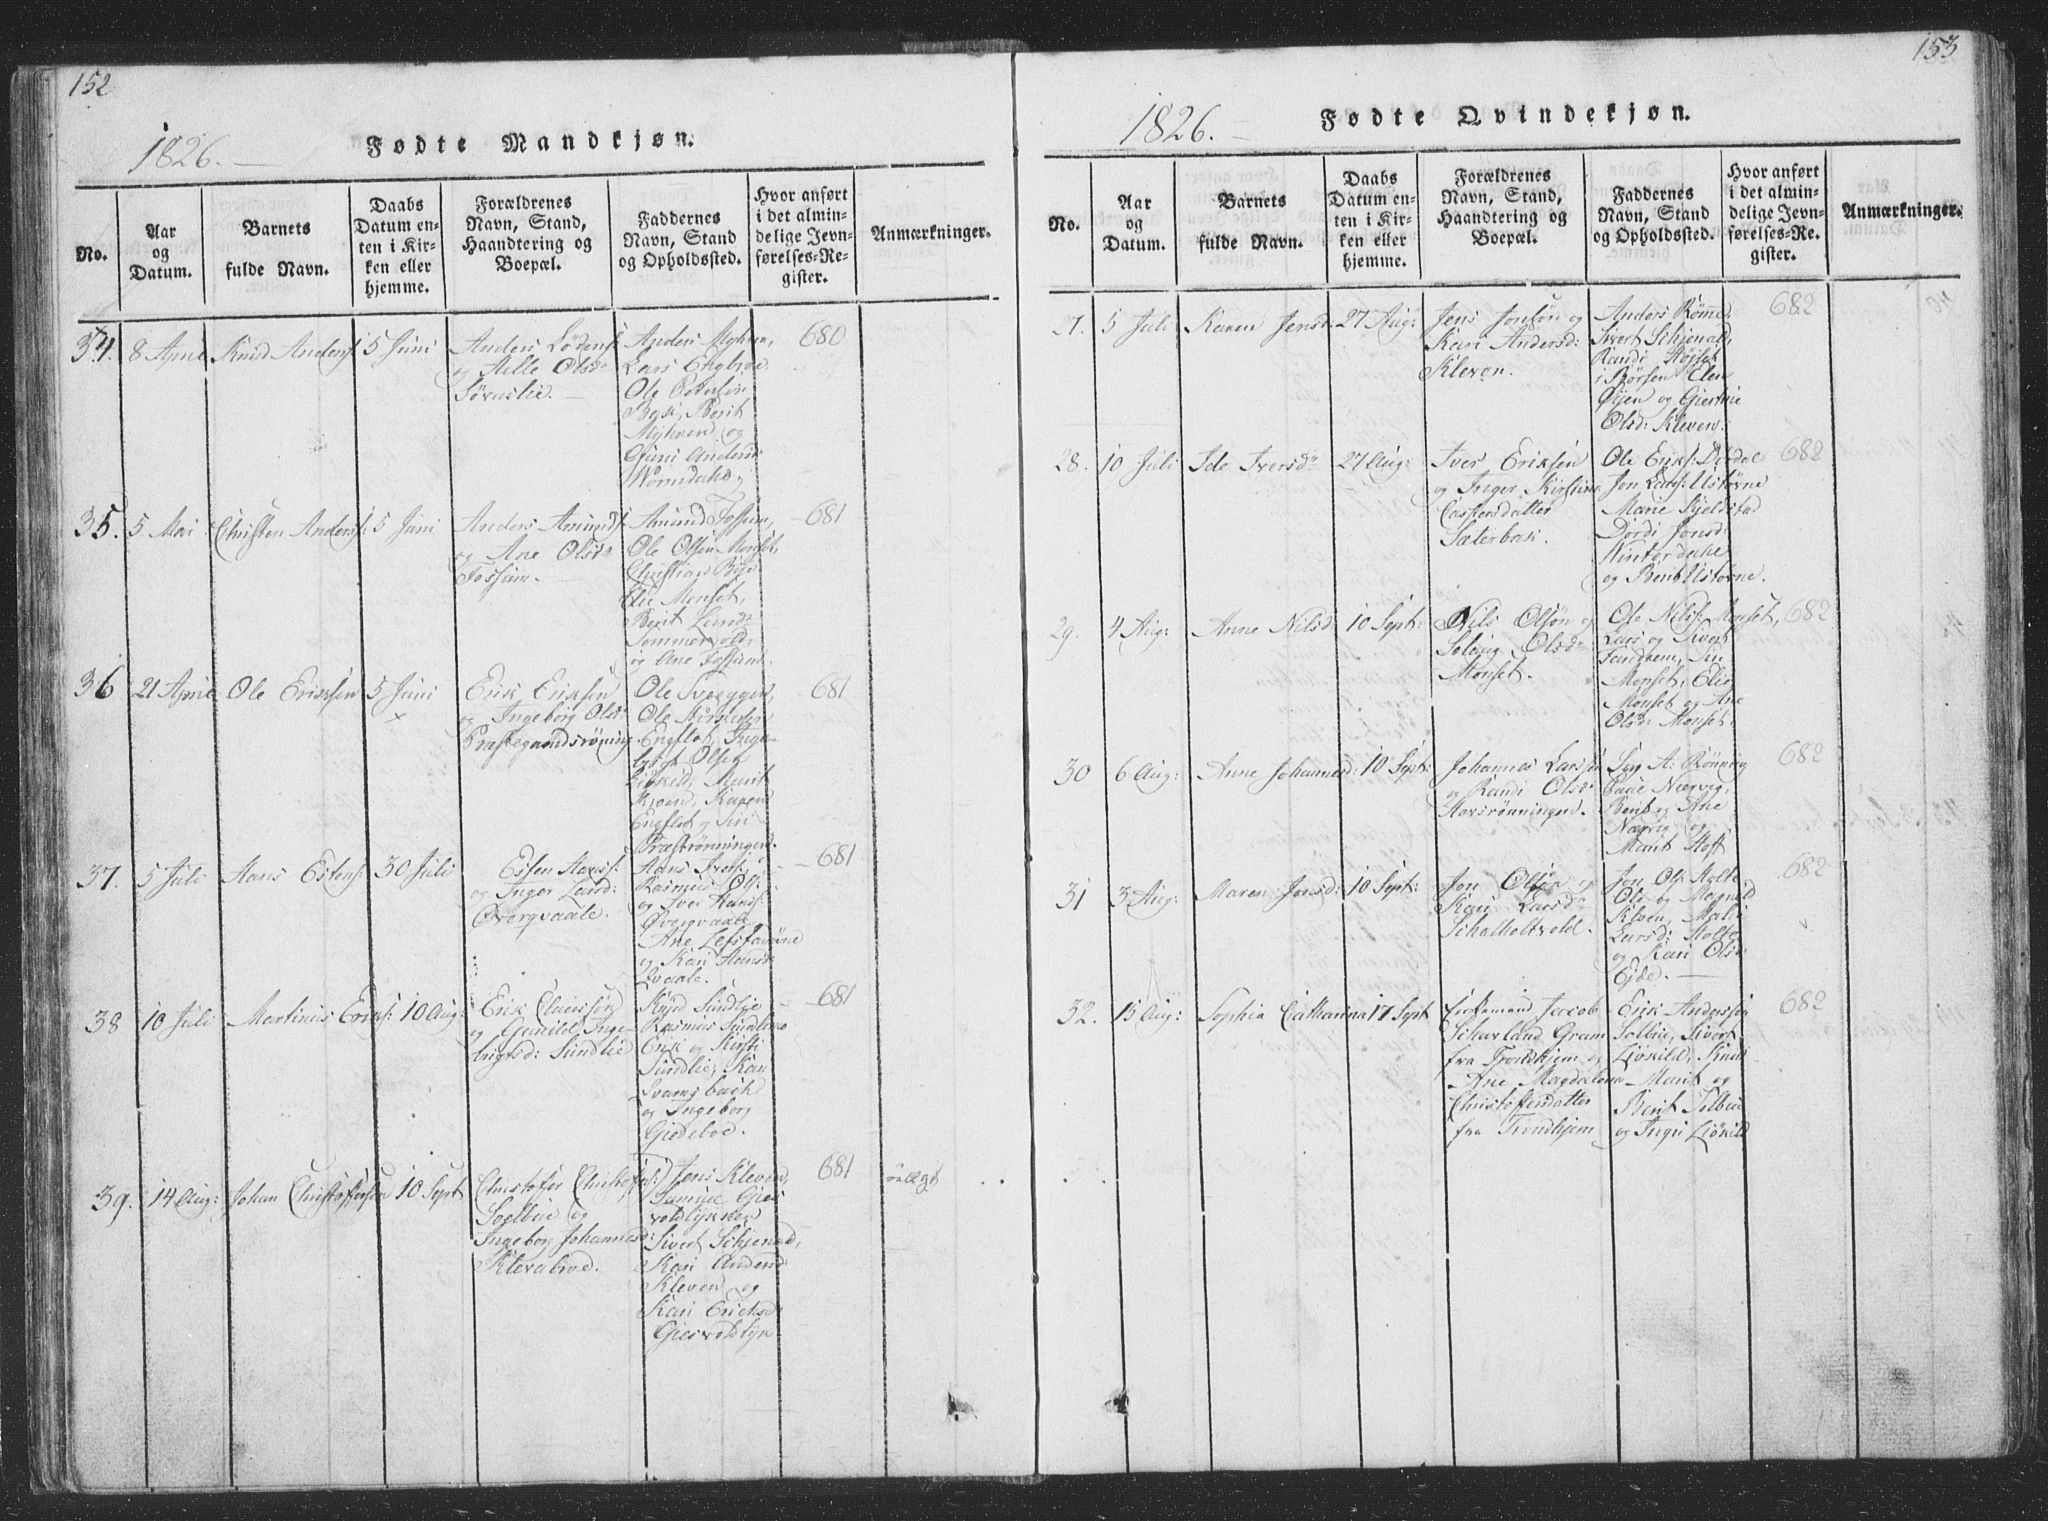 152
1826.
Fødte Mandkjøn.
No.
Aar
og
Datum.
Barnets
fulde Navn.
Daabs
Datum en-
ten i Kir-
ken eller
hjemme.
Forældrenes
Navn, Stand,
Haandtering og
Boepæl.
Faddernes
Navn, Stand
og Opholdssted.
Hvor anført
i det almin-
delige Jevn-
førelses-Re-
gister.
Anmærkninger.
34.
8 April
Knud Anders:
5 Juni
Anders
og Olsdr
Anders Myhren,
Lars
Ole
Berit
Myhren og
Guri Andersd:
680
35.
5 Mai
Christen Anders:
5 Juni
Anders Amunds:
og Ane Olsdr
Fossum.
Amund Fossum,
Ole Olsøn Monset,
Christian
Elie Monset,
Berit Lund:
Sommervold:
og Ane Fossum.
681
36
21 April
Ole Eriksen
5 Juni
Erik Eriksen
og Ingeborg Olsdr
Præstegaardsrønning.
Ole Sveggen,
Ole
Engflot, Inge-
brigt Olsen
Liøkild, Marit
Moen, Karen
Engflot og Siri
Præstrønningen.
681
37.
5 Juli
Hans Estens:
30 Juli
Esten Hans:
og Inger Larsd:
Øvergvaale.
Hans Ivers:
Rasmus Ols:
og Iver Hans:
Øvergvaale,
Ane
og Kari Hansd:
Qvaale.
681
38
10 Juli
Martinus Eriks:
10 Aug:
Erik Claussøn
og Gunild Inge-
brigtsd: Sundlie
Knud Sundlie
Rasmus Sundlie
Erik og Kirsti
Sundlie, Kari
Qvamsbach
og Ingeborg
Giedeboe.
681
39.
14 Aug:
Johan Christoffersen
10 Sept
Christofer Christofers:
Soelbue og
Ingeborg Johannesd:
Klevaboe.
Jens Kleven,
Samuel Gies
voldlykken
Sivert Schjenald,
Kari Andersd:
Kleven og
Kari Ericksd:
Giesvoldlyk
681
uægt
153
1826.
Fødte Qvindekjøn.
No.
Aar
og
Datum.
Barnets
fulde Navn.
Daabs
Datum en-
ten i Kir-
ken eller
hjemme.
Forældrenes
Navn, Stand,
Haandtering og
Boepæl.
Faddernes
Navn, Stand
og Opholdssted.
Hvor anført
i det almin-
delige Jevn-
førelses-Re-
gister.
Anmærkninger.
27.
5 Juli
Karen Jensd:
27 Aug:
Jens Jonsøn og
Kari Andersd:
Kleven.
Anders Rømme,
Sivert Schjenald,
Randi
i Børsen Elen
Øyen og Giertrue
Olsd: Kleven.
682
28.
10 Juli
Ide Iversdr
27 Aug:
Iver Eriksen
og Inger Kirstine
Caspersdatter
Sæterbak.
Ole Eriks:
Jon Lars: Ustørne
Marie Kjelstad
Dordi Jonsd:
Vinterdahe
og Berit Ustørne.
682
29.
4 Aug:
Anne Nilsd
10 Sept:
Nils Olsøn og
Solvig Olsdr
Monset.
Ole Nils: Monset,
Lars og Sivert
Fandrem, Siri
Monset, Elie
Monset og Ane
Olsd: Monset
682
30
6 Aug:
Anne Johannesd:
10 Sept:
Johannes Larssen
og Randi Olsdr
Storrønningen.
Siri A: Rønning
Paul Nærvig,
Berit og Ane
Nærvig og
Marit Hoff
682
31
3 Aug:
Maren Jonsd:
10 Sept:
Jon Olsen og
Kari Larsd:
Schalholtvold.
Jon Ols: Holte
Ole og Magnild
Kleven, Mali
Larsd: Holte
og Kari Olsd:
Eide.
682
32.
15 Aug:
Sophia Cathanna
17 Sept
Jacob
Scharland Gram
fra Trondhjem og
Ane Magdalena
Christoffersdatter
fra Trondhjem
Erik Anderssøn
Solbue, Sivert
Liøkild, Knud
Marit og
Berit Selbue
og Ingri Liøkild
682